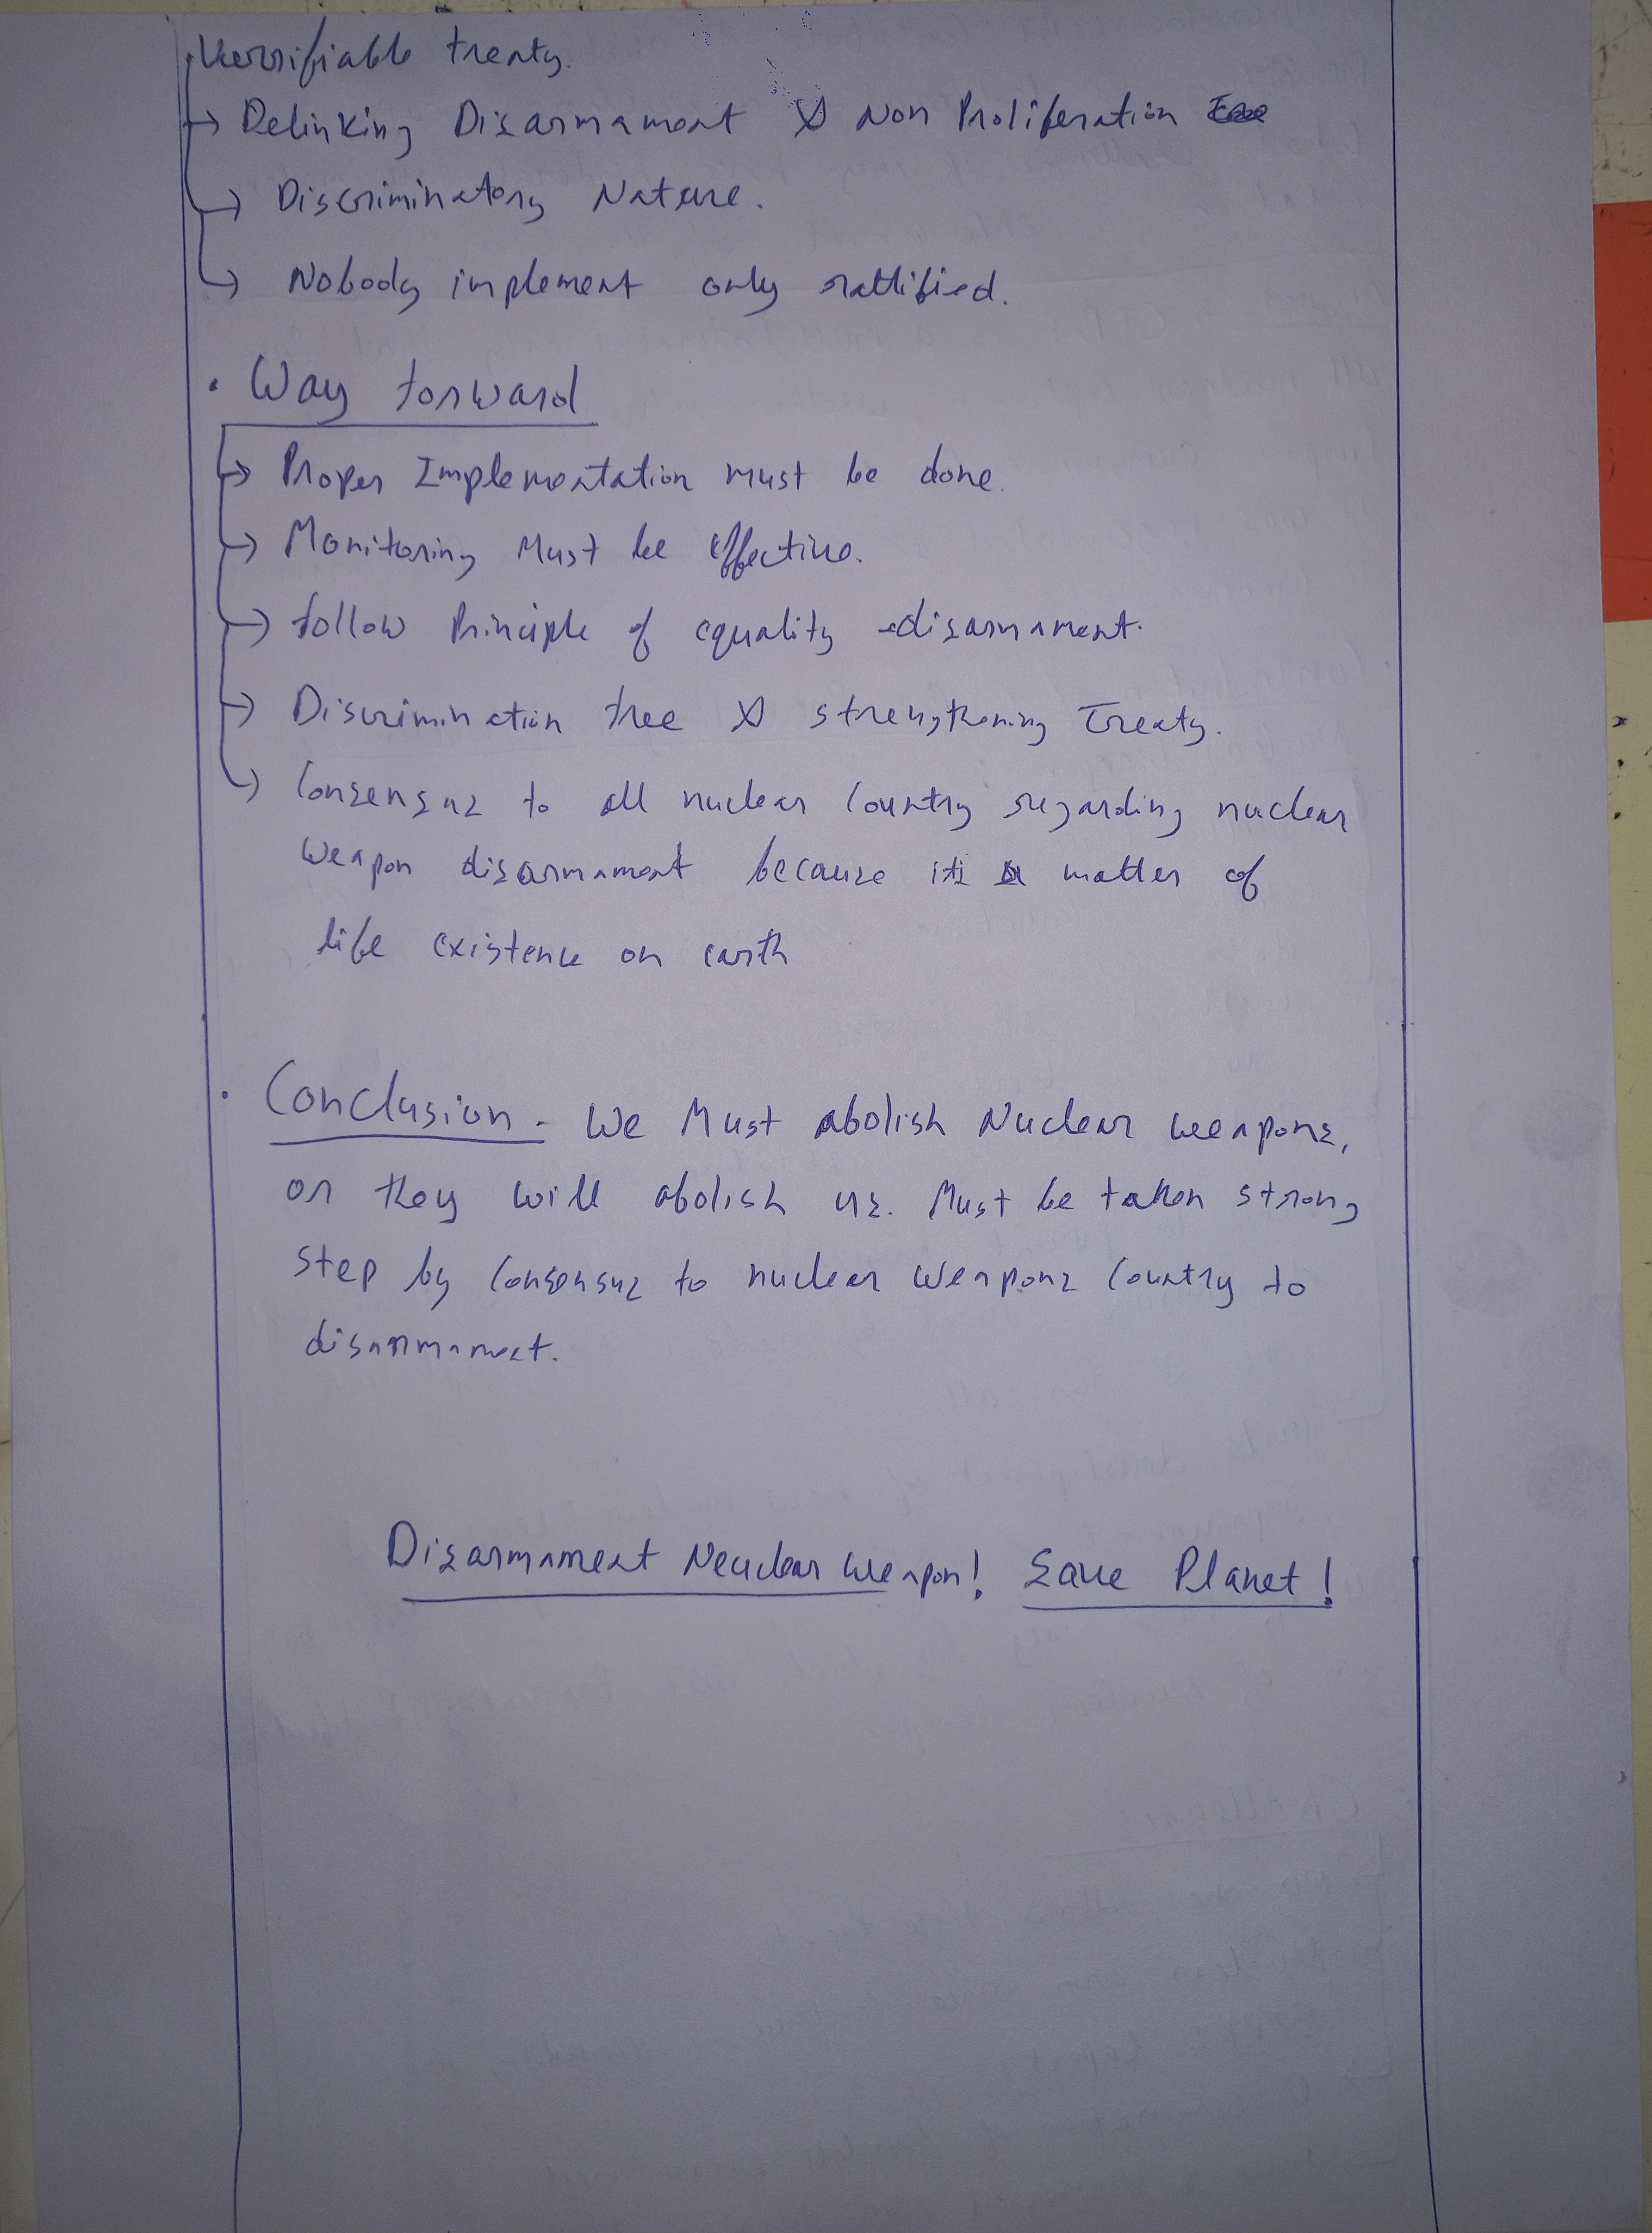 Verrifiable treaty.
→ Delinking Disarmament & Non Proliferation
→ Discriminatory Nature.
→ Nobody implement only rattified.
• Way forward
→ Proper Implementation must be done.
→ Monitoring Must be effective.
→ follow Principle of equality disarmament.
→ Discrimination free & strengthening Treaty.
→ Consensus to all nuclear Country regarding nuclear
weapon disarmament because its a matter of
life existence on earth
• Conclusion - We Must abolish Nuclear weapons,
or they will abolish us. Must be taken strong
step by Consensus to nuclear weapons Country to
disarmament.
Disarmament Neuclear weapon! Save Planet!